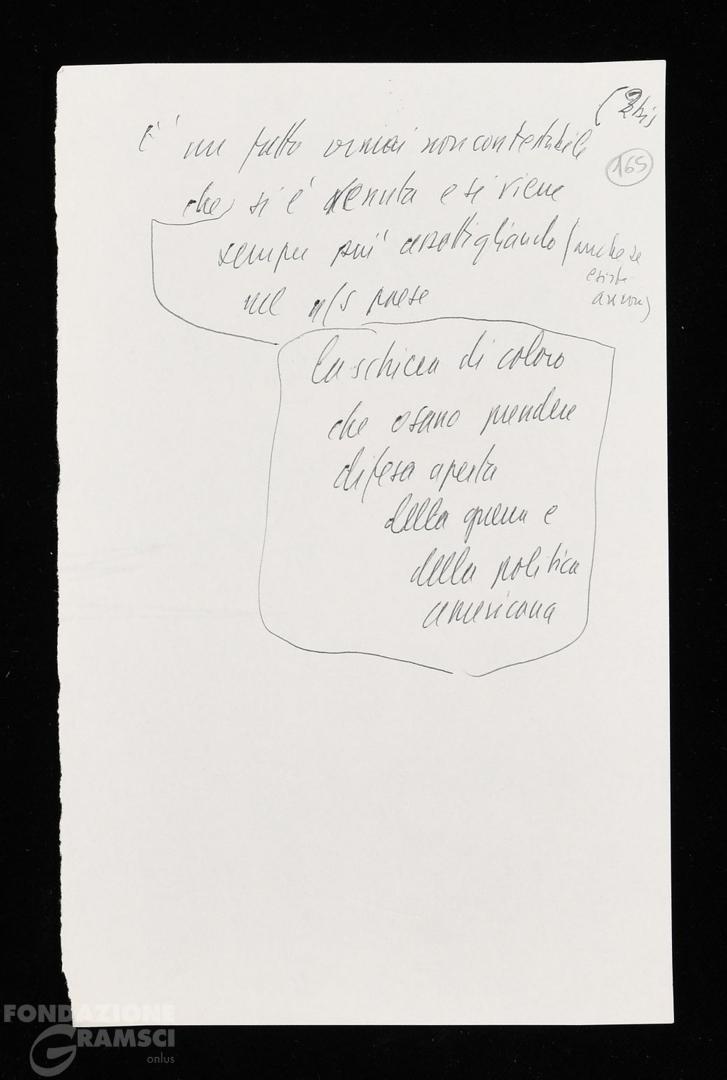 (2bis
165
È un fatto ormai non contestabile
che si è venuta e si viene
sempre più assottigliando (anche se
esiste
ancora)
nel n/s paese
la schiera di coloro
che osano prendere
difesa aperta
della guerra e
della politica
americana
FONDAZIONE
GRAMSCI
onlus